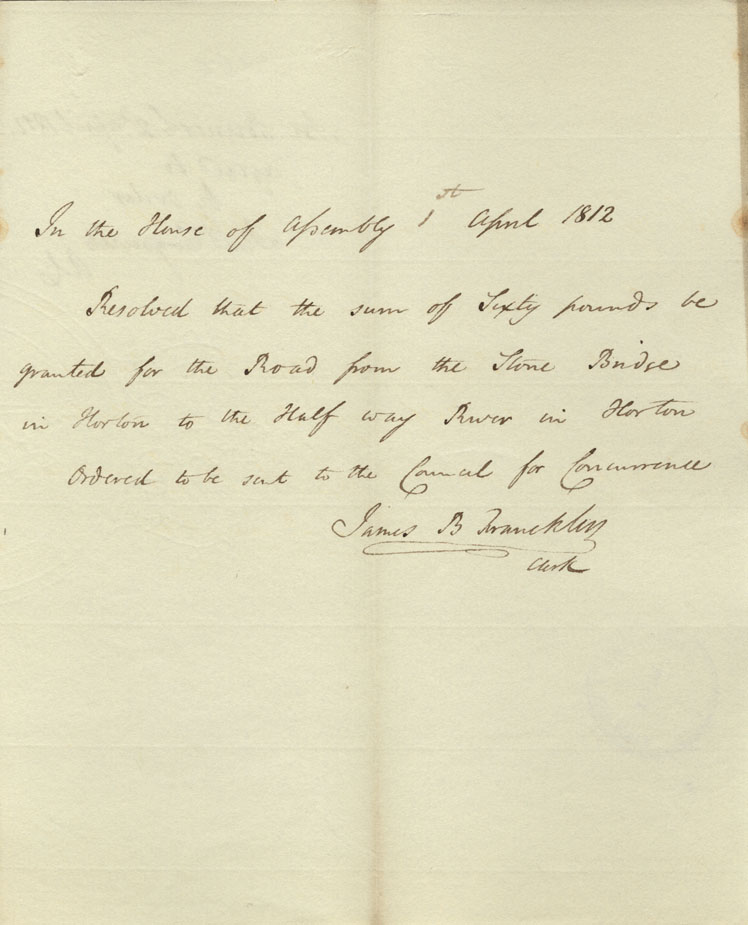 In the House of Assembly 1st April 1812
Resolved that the sum of Sixty pounds be
granted for the Road from the Stone Bridge
in Horton to the Half way River in Horton
Ordered to be sent to the Council for Concurrence
James B Francklin
Clerk